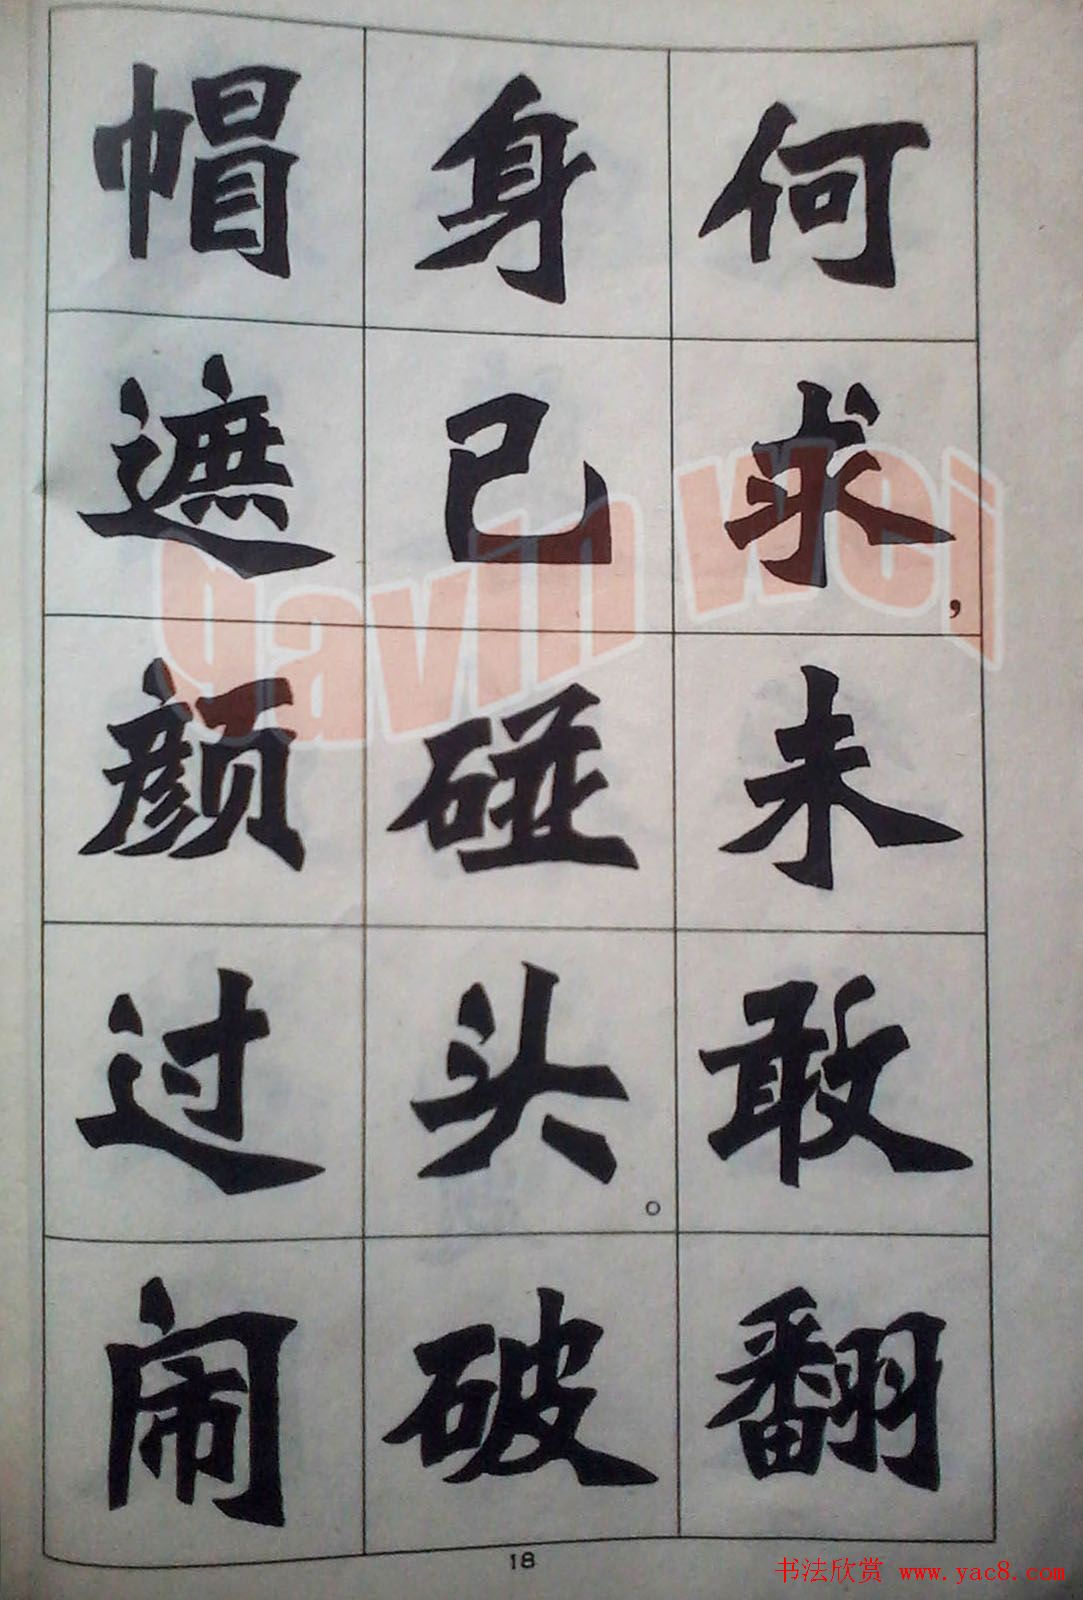 何求，未敢翻
身已碰头。破
帽遮颜过闹
18
gavin wei
书法欣赏 www.yac8.com